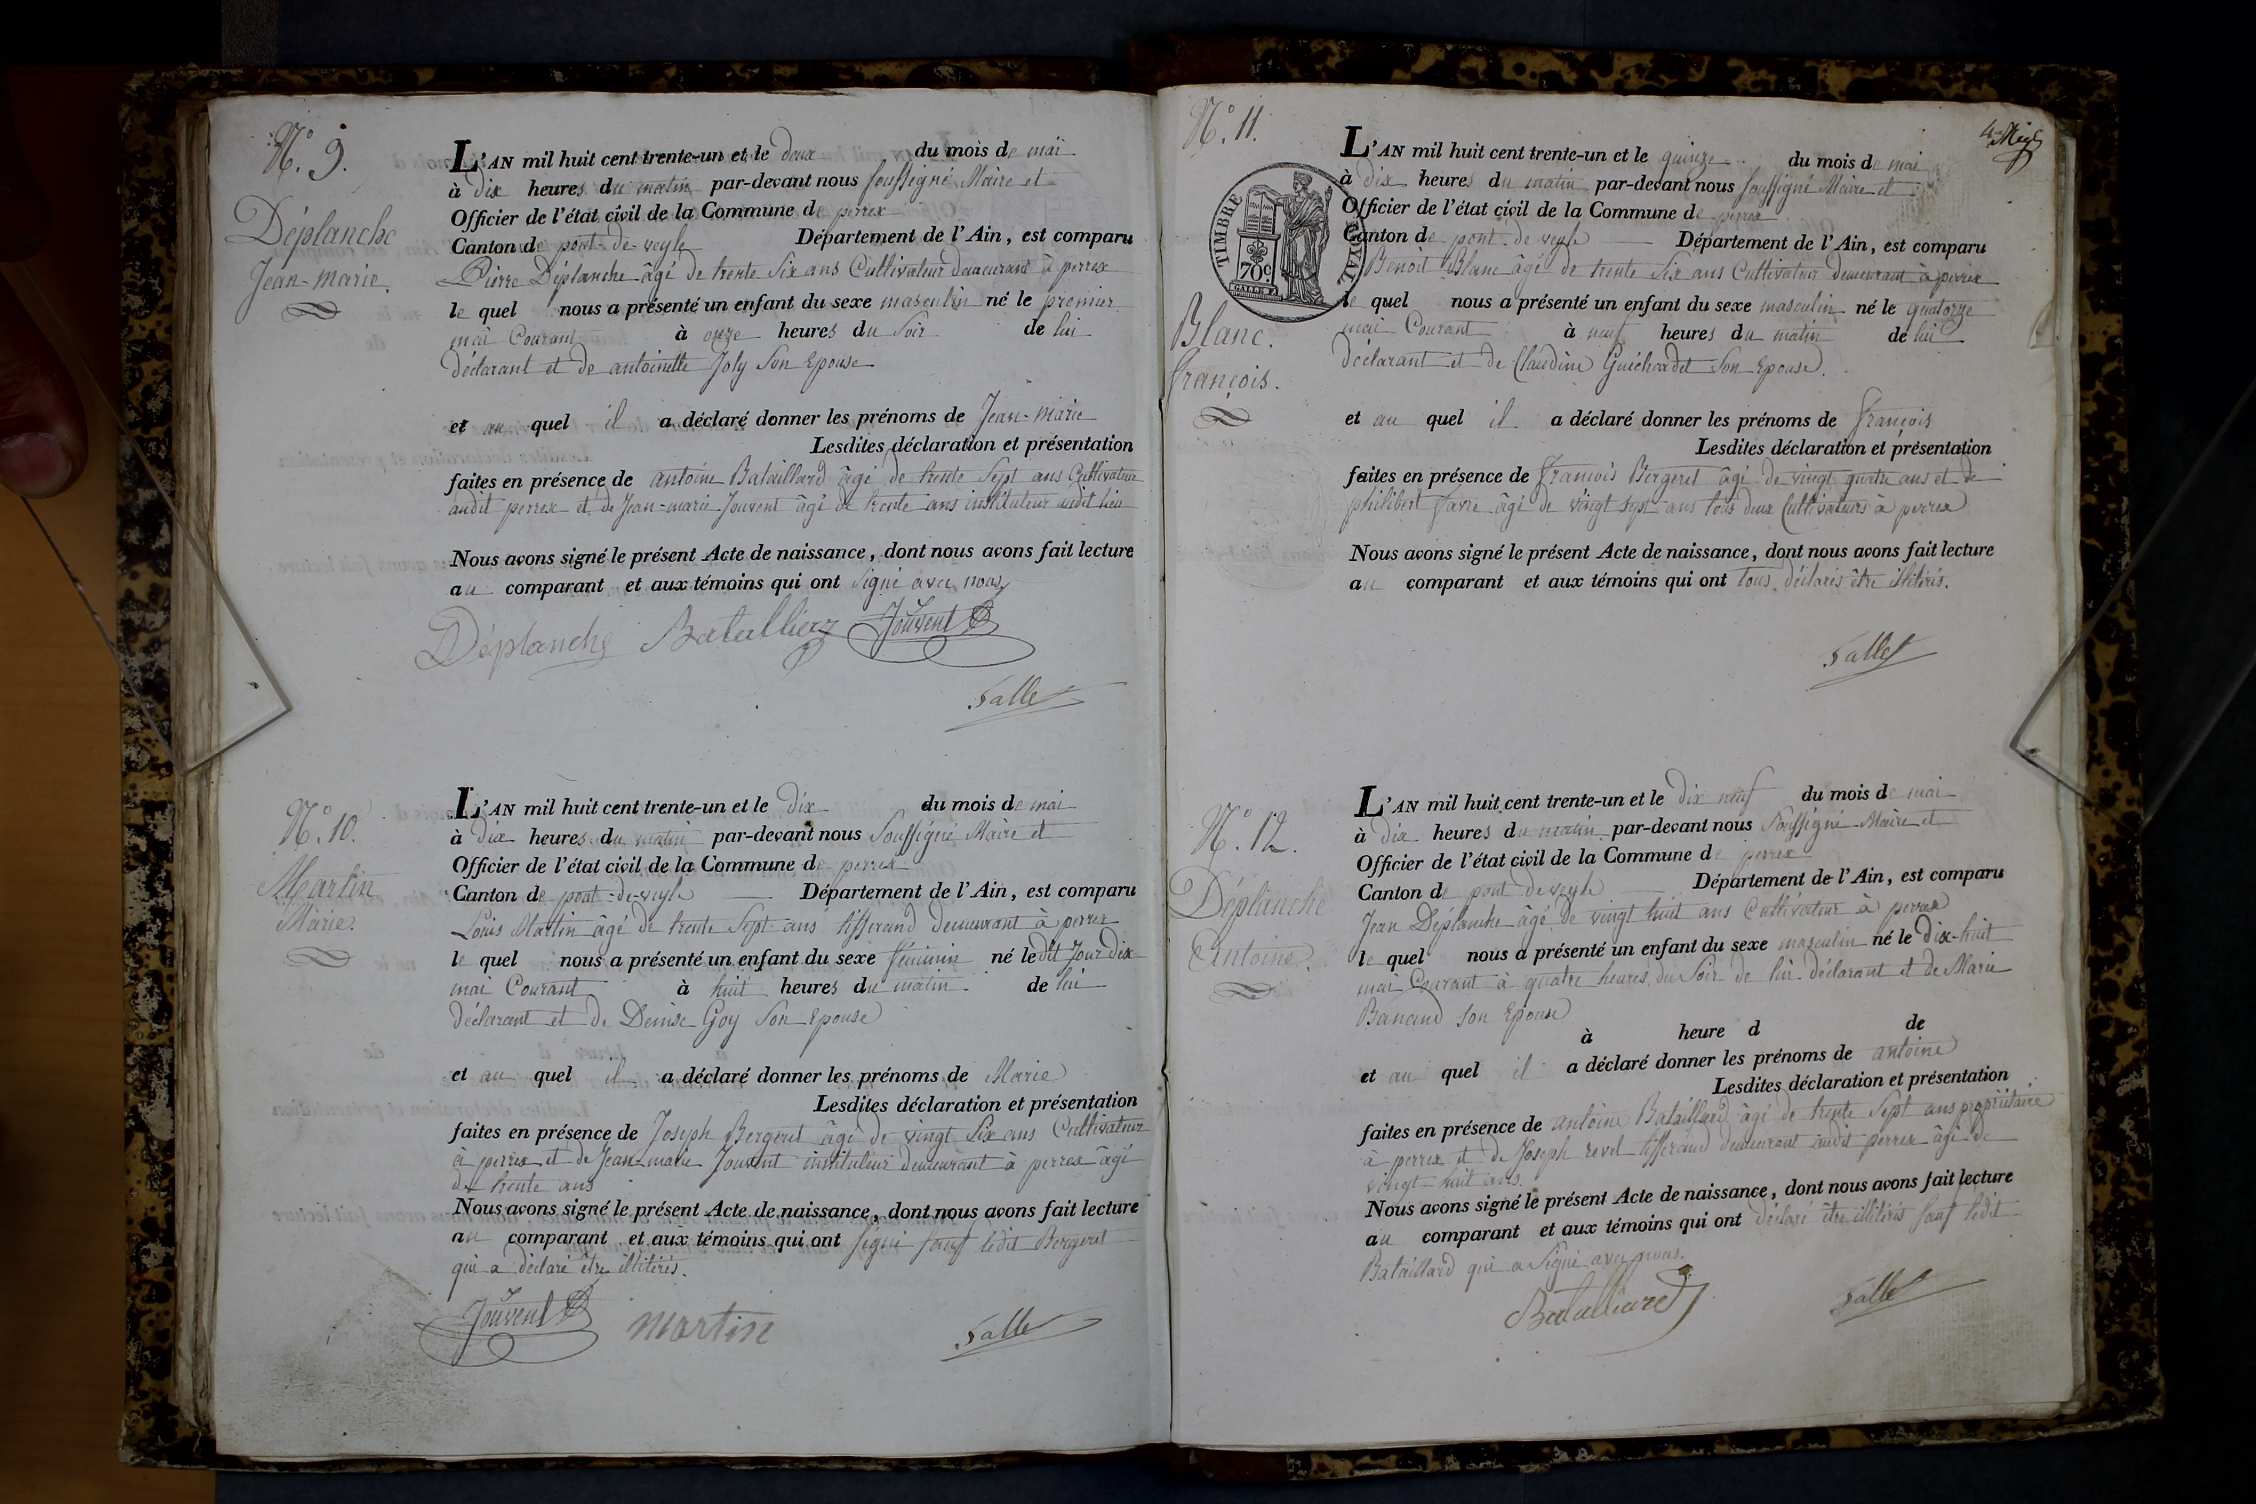 N.° 9.
Déplanche
Jean-marie.
L'AN mil huit cent trente-un et le deux du mois de mai
à dix heures du matin par-devant nous soussigné Maire et
Officier de l'état civil de la Commune de perrex
Canton de pont-de-veyle Département de l'Ain, est comparu
Pierre Déplanche âgé de trente six ans Cultivateur demeurant à perrex
le quel nous a présenté un enfant du sexe masculin né le premier
mai Courant à onze heures du soir de lui
déclarant et de antoinette Joly son Epouse
et au quel il a déclaré donner les prénoms de Jean-marie
Lesdites déclaration et présentation
faites en présence de antoine Bataillard âgé de trente sept ans Cultivateur
audit perrex et de Jean-marie Jouvent âgé de trente ans instituteur audit lieu
Nous avons signé le présent Acte de naissance, dont nous avons fait lecture
au comparant et aux témoins qui ont signé avec nous
Déplanche Jouvent
Salle
N.° 10.
Martin
Marie.
L'AN mil huit cent trente-un et le dix du mois de mai
à dix heures du matin par-devant nous soussigné Maire et
Officier de l'état civil de la Commune de perrex
Canton de pont-de-veyle Département de l'Ain, est comparu
Louis Martin âgé de trente sept ans tisserand demeurant à perrex
le quel nous a présenté un enfant du sexe féminin né ledit Jour dix
mai Courant à huit heures du matin de lui
déclarant et de Denise Goy son Epouse
et au quel il a déclaré donner les prénoms de Marie
Lesdites déclaration et présentation
faites en présence de Joseph Bergeret âgé de vingt six ans Cultivateur
à perrex et de Jean-marie Jouvent instituteur demeurant à perrex âgé
de trente ans
Nous avons signé le présent Acte de naissance, dont nous avons fait lecture
au comparant et aux témoins qui ont signé sauf ledit Bergeret
qui a déclaré être illitéris.
Jouvent martin Salle
N.° 11.
TIMBRE ROYAL
70c
Blanc.
françois.
L'AN mil huit cent trente-un et le quinze du mois de mai
à dix heures du matin par-devant nous soussigné Maire et
Officier de l'état civil de la Commune de perrex
Canton de pont-de-veyle Département de l'Ain, est comparu
Benoit Blanc âgé de trente six ans Cultivateur demeurant à perrex
le quel nous a présenté un enfant du sexe masculin né le quatorze
mai Courant à neuf heures du matin de lui
déclarant et de Claudine Guichardet son Epouse.
et au quel il a déclaré donner les prénoms de françois
Lesdites déclaration et présentation
faites en présence de françois Bergeret âgé de vingt quatre ans et de
philibert favre âgé de vingt sept ans tous deux Cultivateurs à perrex
Nous avons signé le présent Acte de naissance, dont nous avons fait lecture
au comparant et aux témoins qui ont tous déclarés être illitéris.
Salle
N.° 12.
Déplanche
Antoine.
L'AN mil huit cent trente-un et le dix neuf du mois de mai
à dix heures du matin par-devant nous soussigné Maire et
Officier de l'état civil de la Commune de perrex
Canton de pont de veyle Département de l'Ain, est comparu
Jean Déplanche âgé de vingt huit ans Cultivateur à perrex
le quel nous a présenté un enfant du sexe masculin né le dix-huit
mai Courant à quatre heures du soir de lui déclarant et de Marie
Banand son Epouse
à heure d de
et au quel il a déclaré donner les prénoms de antoine
Lesdites déclaration et présentation
faites en présence de antoine Bataillard âgé de trente sept ans propriétaire
à perrex et de Joseph revel tisserand demeurant audit perrex âgé de
vingt huit ans.
Nous avons signé le présent Acte de naissance, dont nous avons fait lecture
au comparant et aux témoins qui ont déclaré être illitéris sauf ledit
Bataillard qui a signé avec nous.
Batalliard Salle